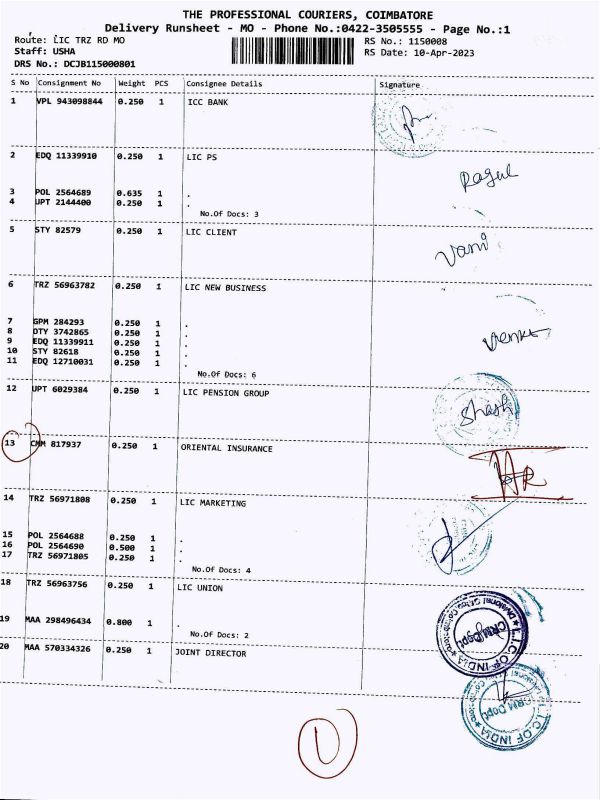 THE PROFESSIONAL COURIERS, COIMBATORE
Delivery Runsheet - MO - Phone No.:0422-3505555 - Page No.:1
Route: LIC TRZ RD MO
RS No.: 1150008
Staff: USHA
RS Date: 10-Apr-2023
DRS No.: DCJB115000801
S No Consignment No Weight PCS Consignee Details Signature
1 VPL 943098844 0.250 1 ICC BANK
2 EDQ 11339910 0.250 1 LIC PS
Ragul
3 POL 2564689 0.635 1 .
4 UPT 2144400 0.250 1 .
No.Of Docs: 3
5 STY 82579 0.250 1 LIC CLIENT
Vani
6 TRZ 56963782 0.250 1 LIC NEW BUSINESS
7 GPM 284293 0.250 1 .
8 DTY 3742865 0.250 1 .
9 EDQ 11339911 0.250 1 .
10 STY 82618 0.250 1 .
11 EDQ 12710031 0.250 1 .
No.Of Docs: 6
12 UPT 6029384 0.250 1 LIC PENSION GROUP
Shash
13 CMM 817937 0.250 1 ORIENTAL INSURANCE
14 TRZ 56971808 0.250 1 LIC MARKETING
15 POL 2564688 0.250 1 .
16 POL 2564690 0.500 1 .
17 TRZ 56971805 0.250 1 .
No.Of Docs: 4
18 TRZ 56963756 0.250 1 LIC UNION
19 MAA 298496434 0.800 1 .
No.Of Docs: 2
L.I.C. OF INDIA
CRM Dept
20 MAA 570334326 0.250 1 JOINT DIRECTOR
L.I.C. OF INDIA
CRM Dept